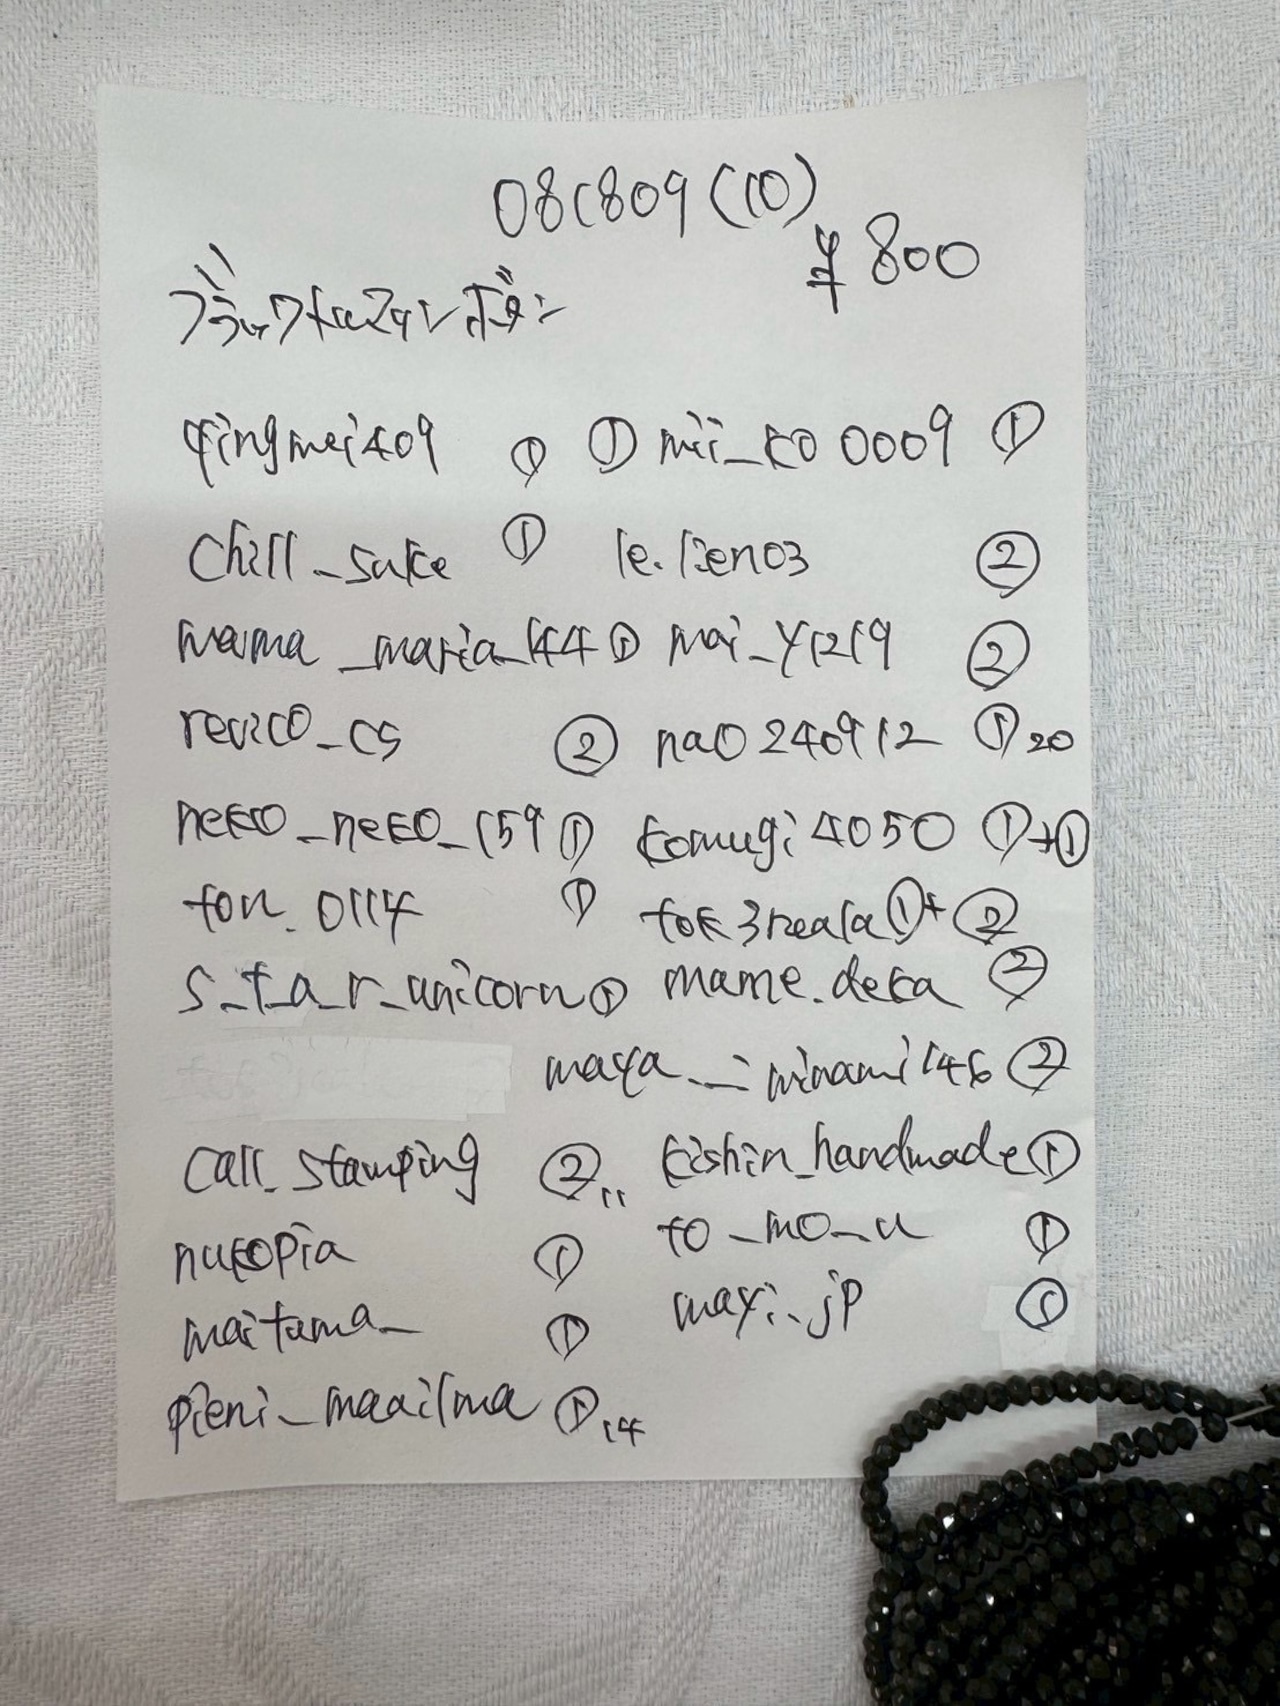 081809(10)
¥800
qingmei409 ① ① mii_ko0009 ①
chill_sake ① le.lien03 ②
mama_maria_144 ① mai_y1219 ②
revico_cs ② nao240912 ① 20
neko_neko_159 ① komugi4050 ①+①
ton.0114 ① tok3reala ①+②
s_t_a_r_unicorn ① mame.deka ②
maya._minami146 ②
call_stamping ② 11 kishin_handmade ①
nukopia ① to_mo_u ①
maitama_ ① mayi._jp ①
pieni_maailma ① 14